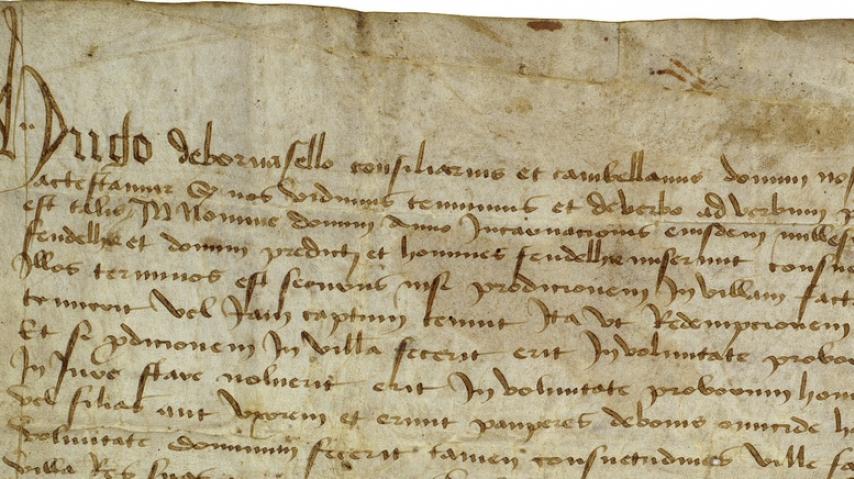 Hugo de bornasello consiliarius et cambellanus domini nos
actestamur q nos vidimus tenuimus et de verbo ad verbum
est talis In Nomine domini Anno Incarnacionis eiusdem milles
fendelhe et domini predicti et homines fendelhe miserunt consue
Illos terminos est secutus nisi prodicionem In villam fact
tenuerit vel Jam captum tenuit Ita vt Redempcionem
Et si pdicionem In villa fecerit erit In voluntate probor
In Jure stare noluerit erit In voluntate proborum hom
vel filias aut vxorem et erunt pauperes de bonis
voluntate dominum fecerit tamen consuetudines ville fa
villa